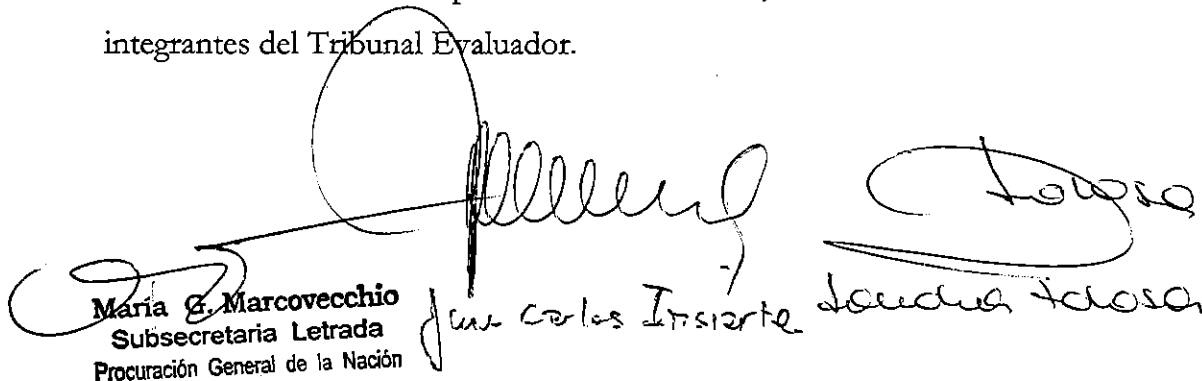 integrantes del Tribunal Evaluador.
Tolosa
María G. Marcovecchio
Subsecretaria Letrada
Procuración General de la Nación
Juan Carlos Irisiarte
Sandra Tolosa